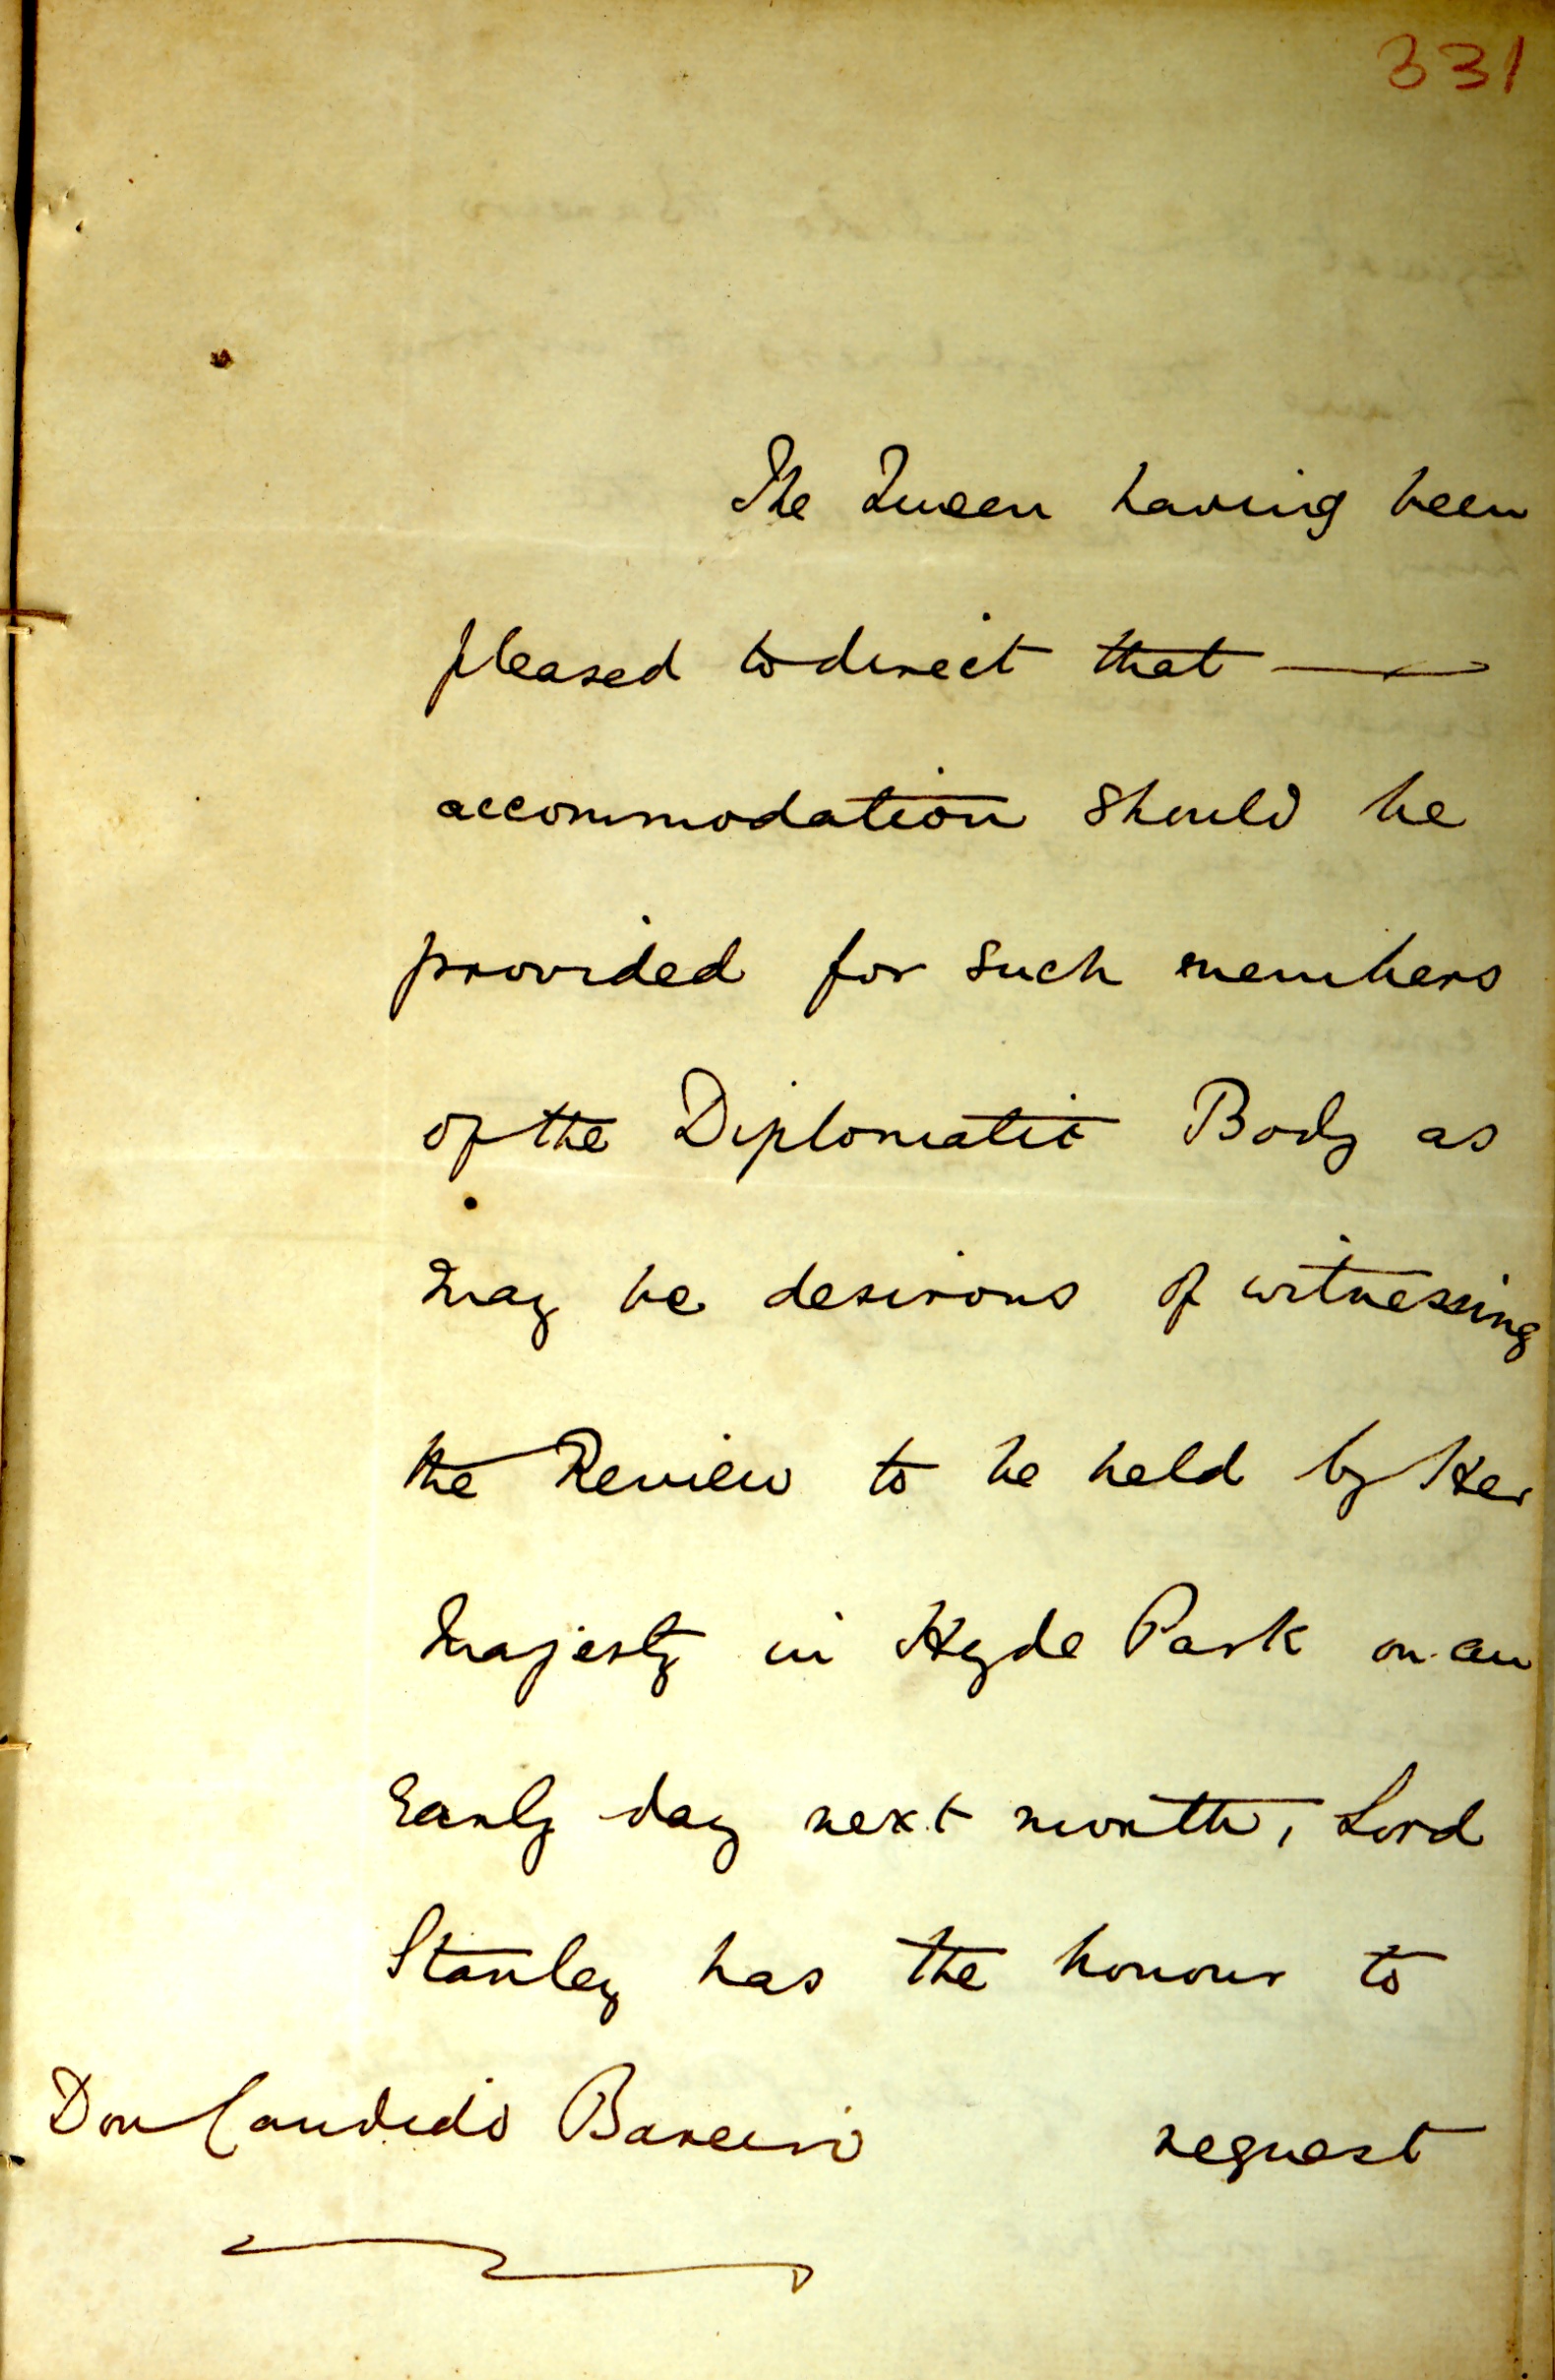 331
The Queen having been
pleased to direct that —
accommodation should be
provided for such members
of the Diplomatic Body as
may be desirous of witnessing
the Review to be held by Her
Majesty in Hyde Park on an
Early day next month, Lord
Stanley has the honour to
Don Candido Bareiro request